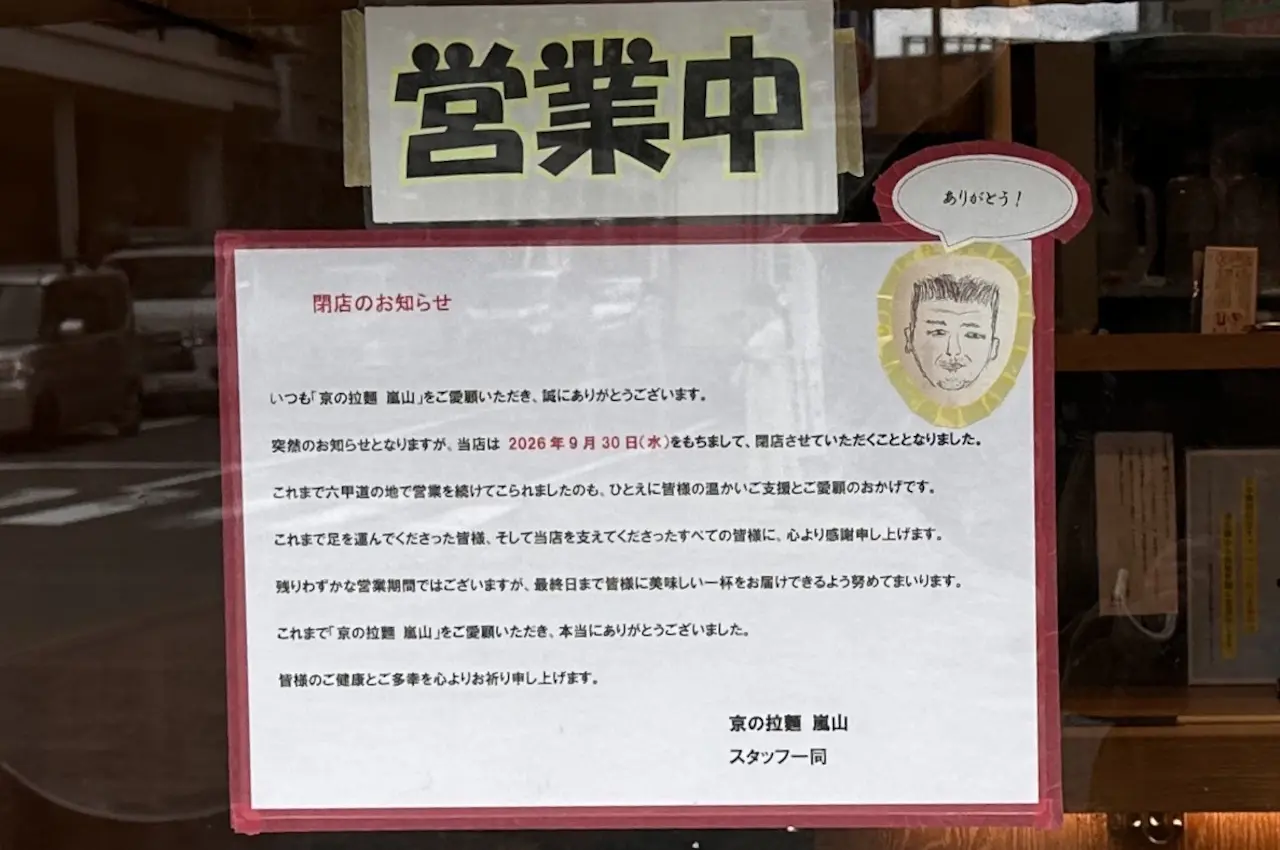 営業中
ありがとう!
閉店のお知らせ
いつも「京の拉麵 嵐山」をご愛顧いただき、誠にありがとうございます。
突然のお知らせとなりますが、当店は 2026年9月30日(水)をもちまして、閉店させていただくこととなりました。
これまで六甲道の地で営業を続けてこられましたのも、ひとえに皆様の温かいご支援とご愛顧のおかげです。
これまで足を運んでくださった皆様、そして当店を支えてくださったすべての皆様に、心より感謝申し上げます。
残りわずかな営業期間ではございますが、最終日まで皆様に美味しい一杯をお届けできるよう努めてまいります。
これまで「京の拉麵 嵐山」をご愛顧いただき、本当にありがとうございました。
皆様のご健康とご多幸を心よりお祈り申し上げます。
京の拉麵 嵐山
スタッフ一同